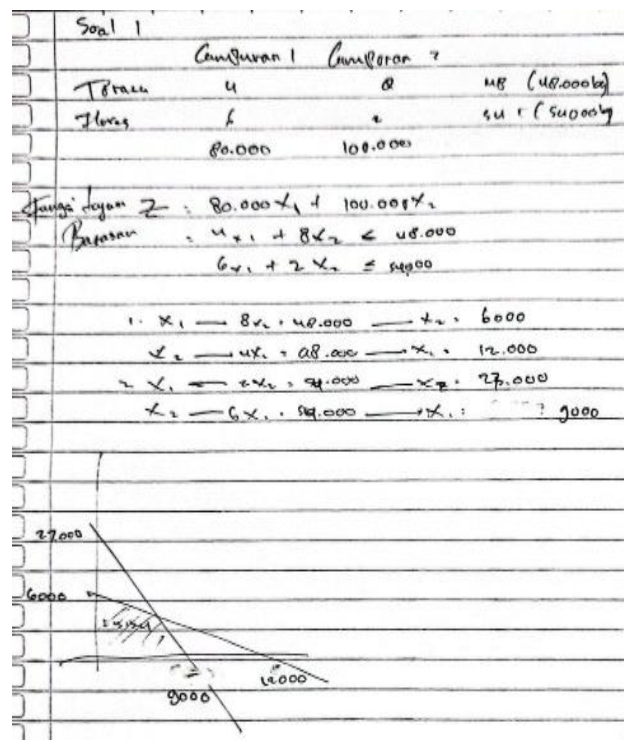 Soal 1
Campuran 1 Campuran 2
Toraca 4 8 48 (48.000kg)
Flores 6 2 54 (54000kg
80.000 100.000
Fungsi tujuan Z : 80.000 X₁ + 100.000 X₂
Batasan : 4x₁ + 8x₂ ≤ 48.000
6x₁ + 2x₂ ≤ 54000
1. X₁ — 8x₂ = 48.000 — x₂ = 6000
X₂ — 4x₁ = 48.000 — x₁ = 12.000
2 X₁ — 2x₂ = 54.000 — x₂ = 27.000
X₂ — 6x₁ = 54.000 — x₁ = 9000
27.000
6000
9000
12000